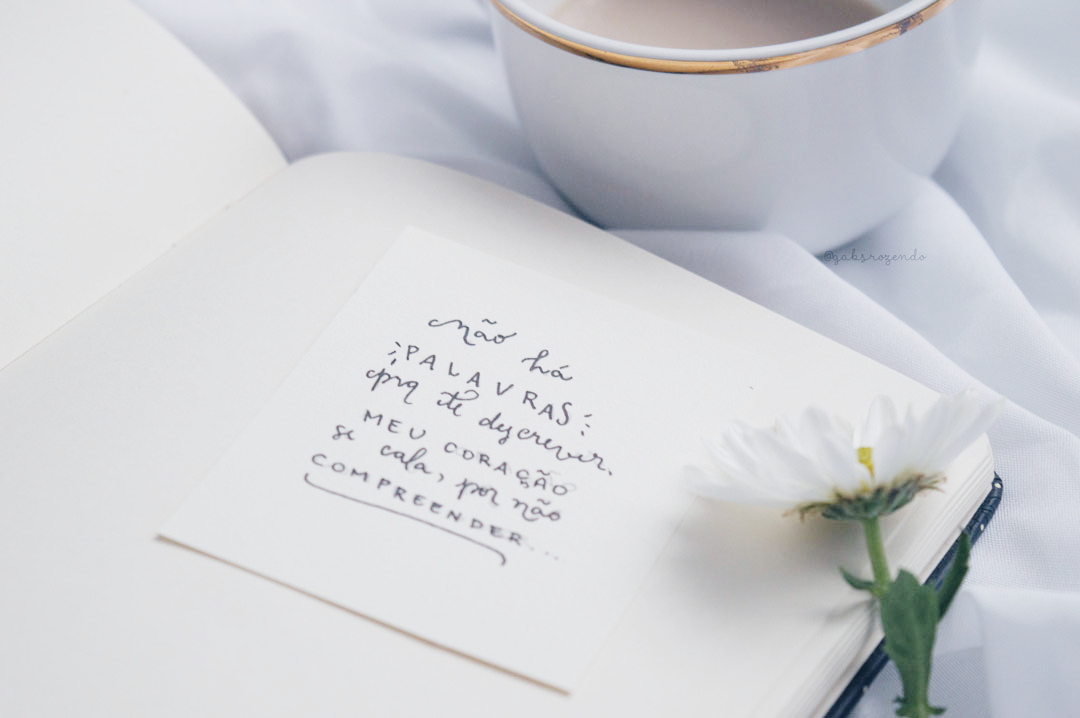 @gabsrozendo
não há
PALAVRAS
pra te descrever.
MEU CORAÇÃO
se cala, por não
COMPREENDER...